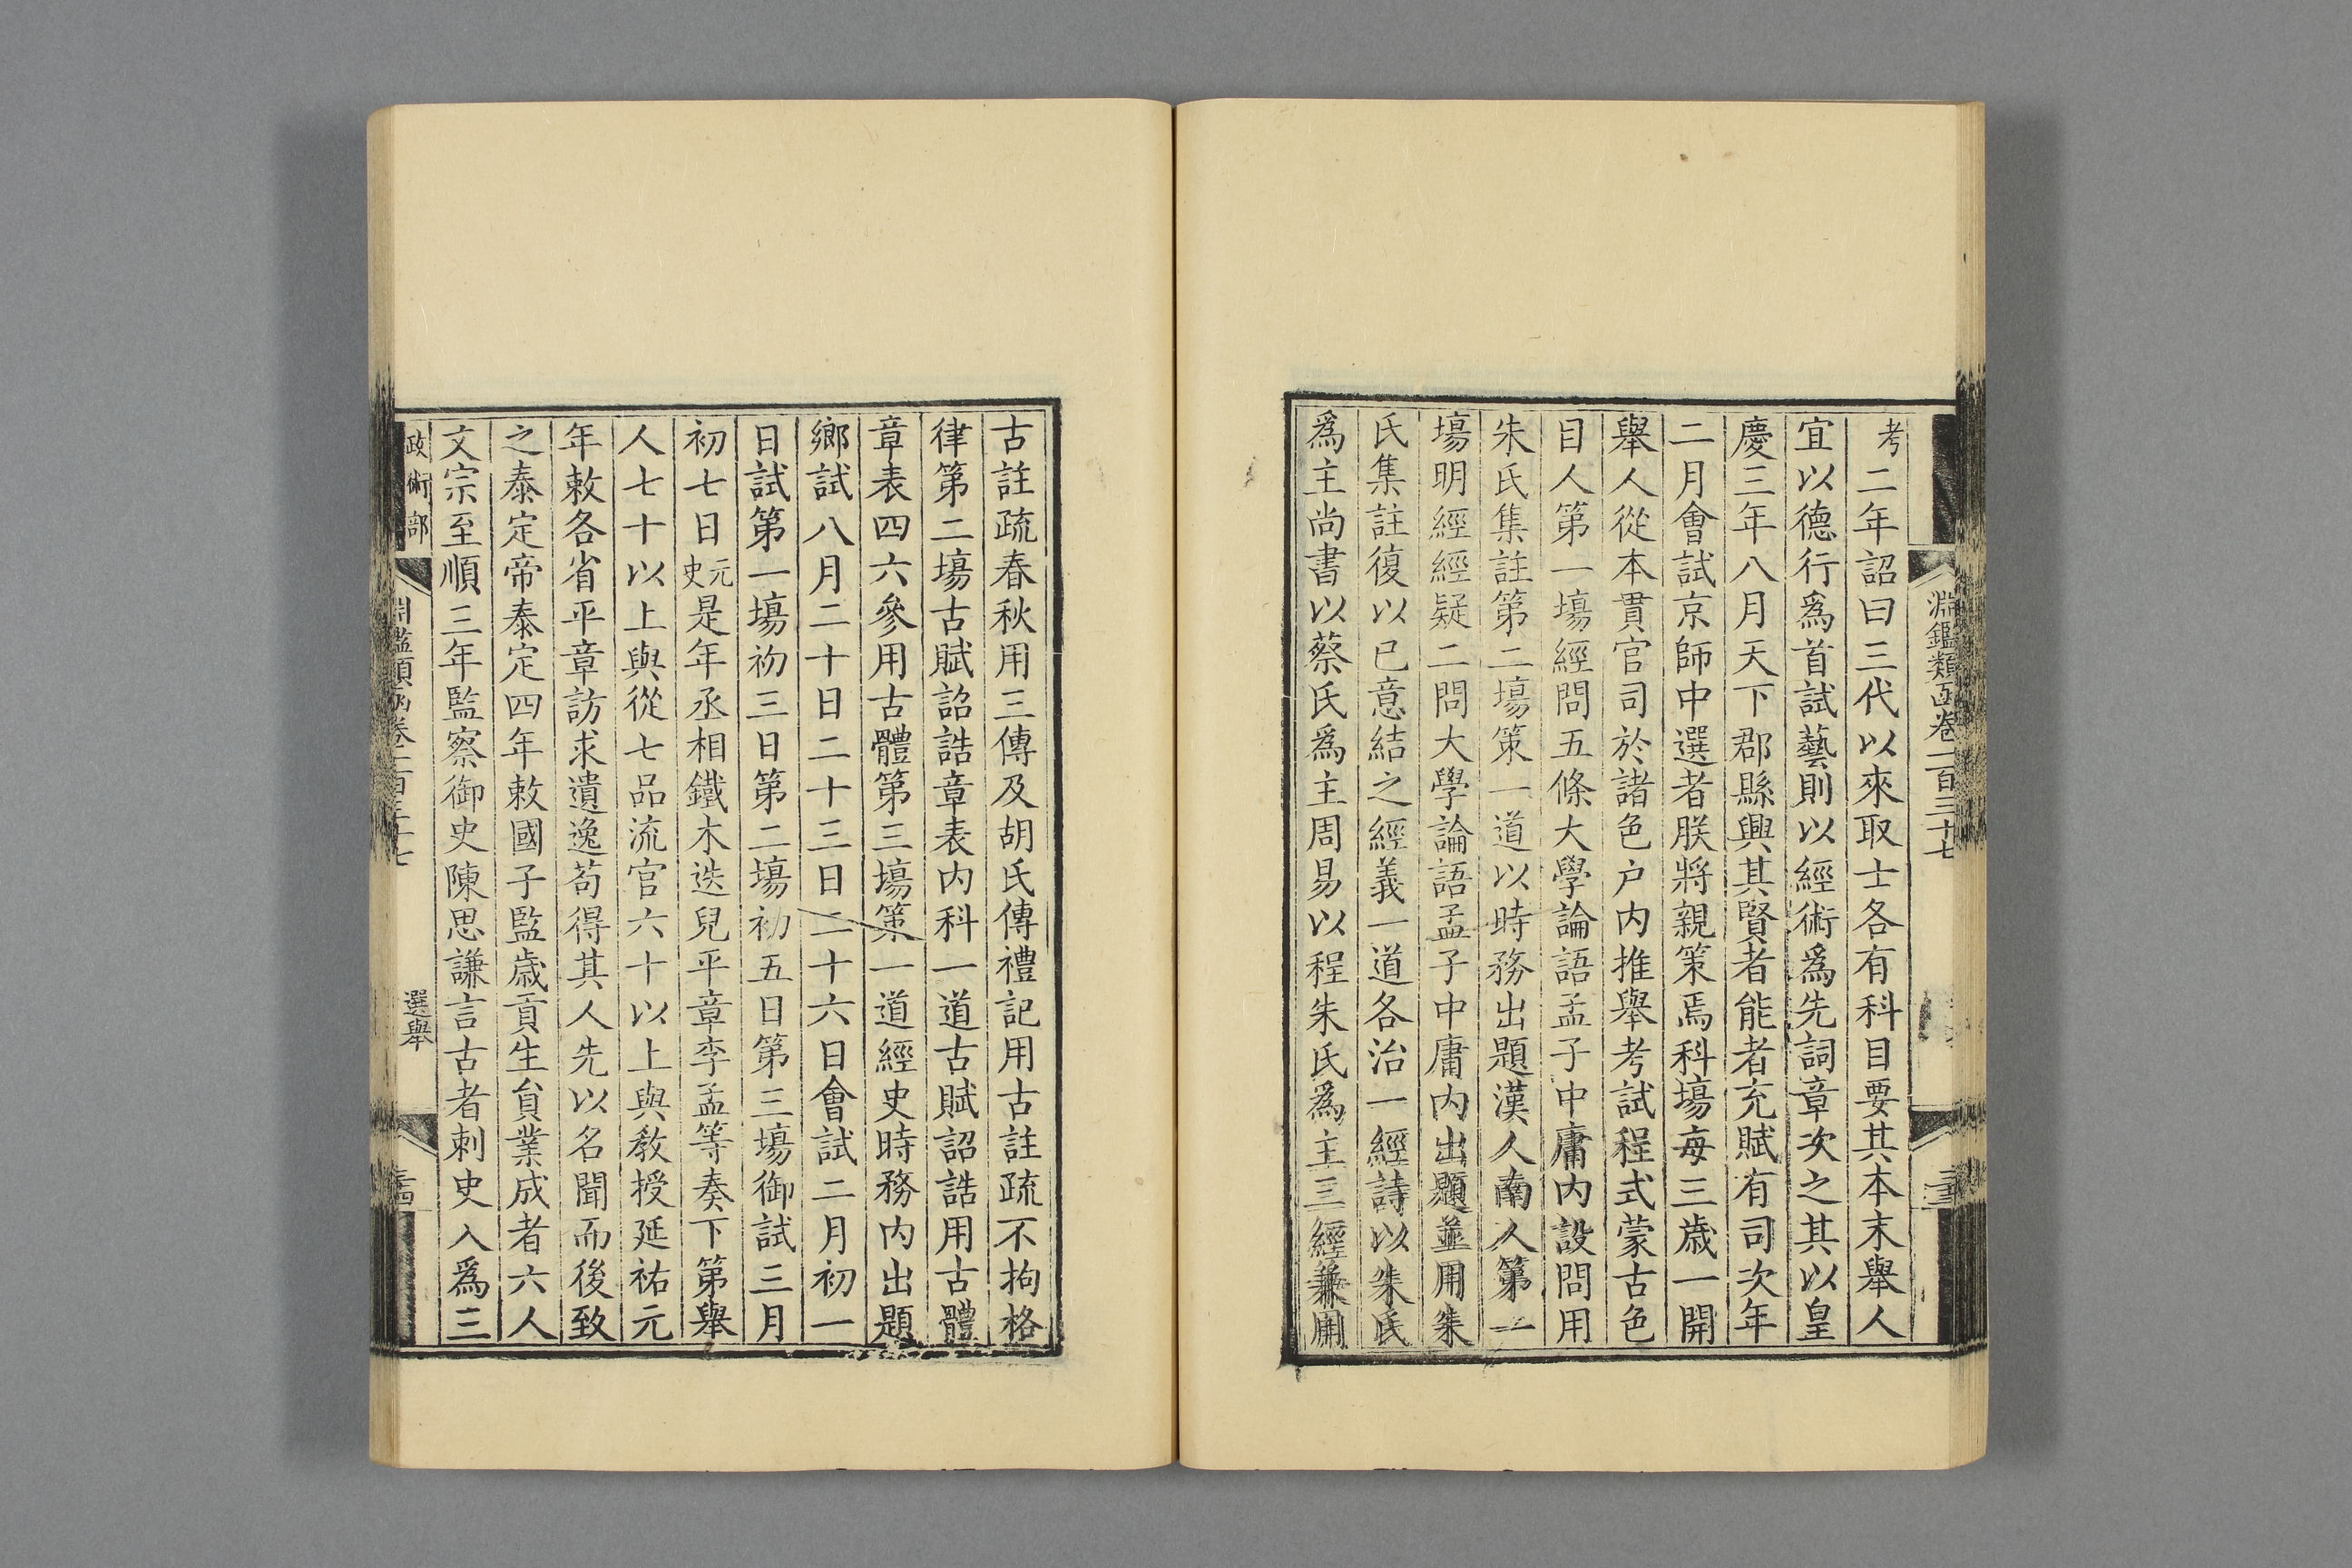 淵鑑類函卷一百三十七
考二年詔曰三代以來取士各有科目要其本末舉人
宜以德行爲首試藝則以經術爲先詞章次之其以皇
慶三年八月天下郡縣興其賢者能者充賦有司次年
二月會試京師中選者朕將親策焉科塲每三歲一開
舉人從本貫官司於諸色户内推舉考試程式蒙古色
目人第一塲經問五條大學論語孟子中庸内設問用
朱氏集註第二塲策一道以時務出題漢人南人第一
塲明經經疑二問大學論語孟子中庸内出題並用朱
氏集註復以己意結之經義一道各治一經詩以朱氏
爲主尚書以蔡氏爲主周易以程朱氏爲主三經兼用
古註疏春秋用三傳及胡氏傳禮記用古註疏不拘格
律第二塲古賦詔誥章表内科一道古賦詔誥用古體
章表四六參用古體第三塲策一道經史時務内出題
鄉試八月二十日二十三日二十六日會試二月初一
日試第一塲初三日第二塲初五日第三塲御試三月
初七日元史是年丞相鐵木迭兒平章李孟等奏下第舉
人七十以上與從七品流官六十以上與敎授延祐元
年敕各省平章訪求遺逸苟得其人先以名聞而後致
之泰定帝泰定四年敕國子監歲貢生員業成者六人
文宗至順三年監察御史陳思謙言古者刺史入爲三
政術部 淵鑑類函卷一百三十七 選舉